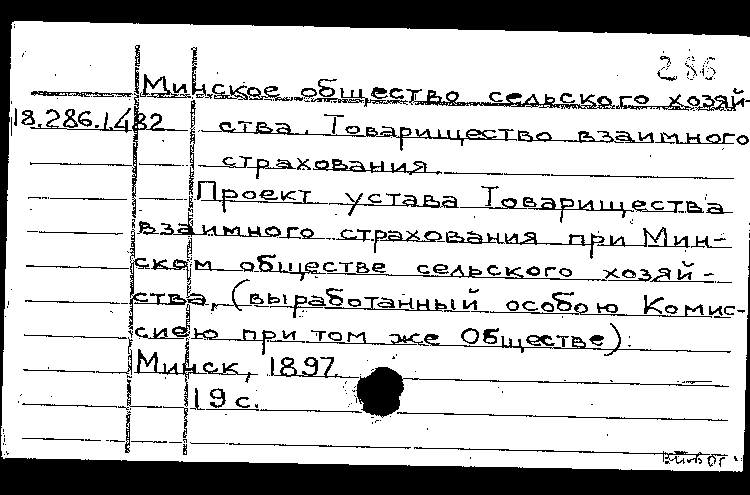 286
Минское общество сельского хозяй-
18.286.1.482 ства. Товарищество взаимного
страхования.
Проект устава Товарищества
взаимного страхования при Мин-
ском обществе сельского хозяй-
ства, (выработанный особою Комис-
сиею при том же Обществе).
Минск, 1897.
19 с.